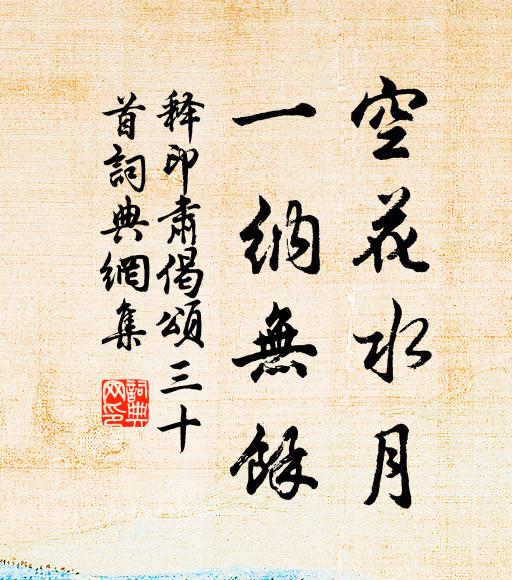 空花水月
一納無餘
释印肅偈頌三十
首詞典網集
詞典
网印